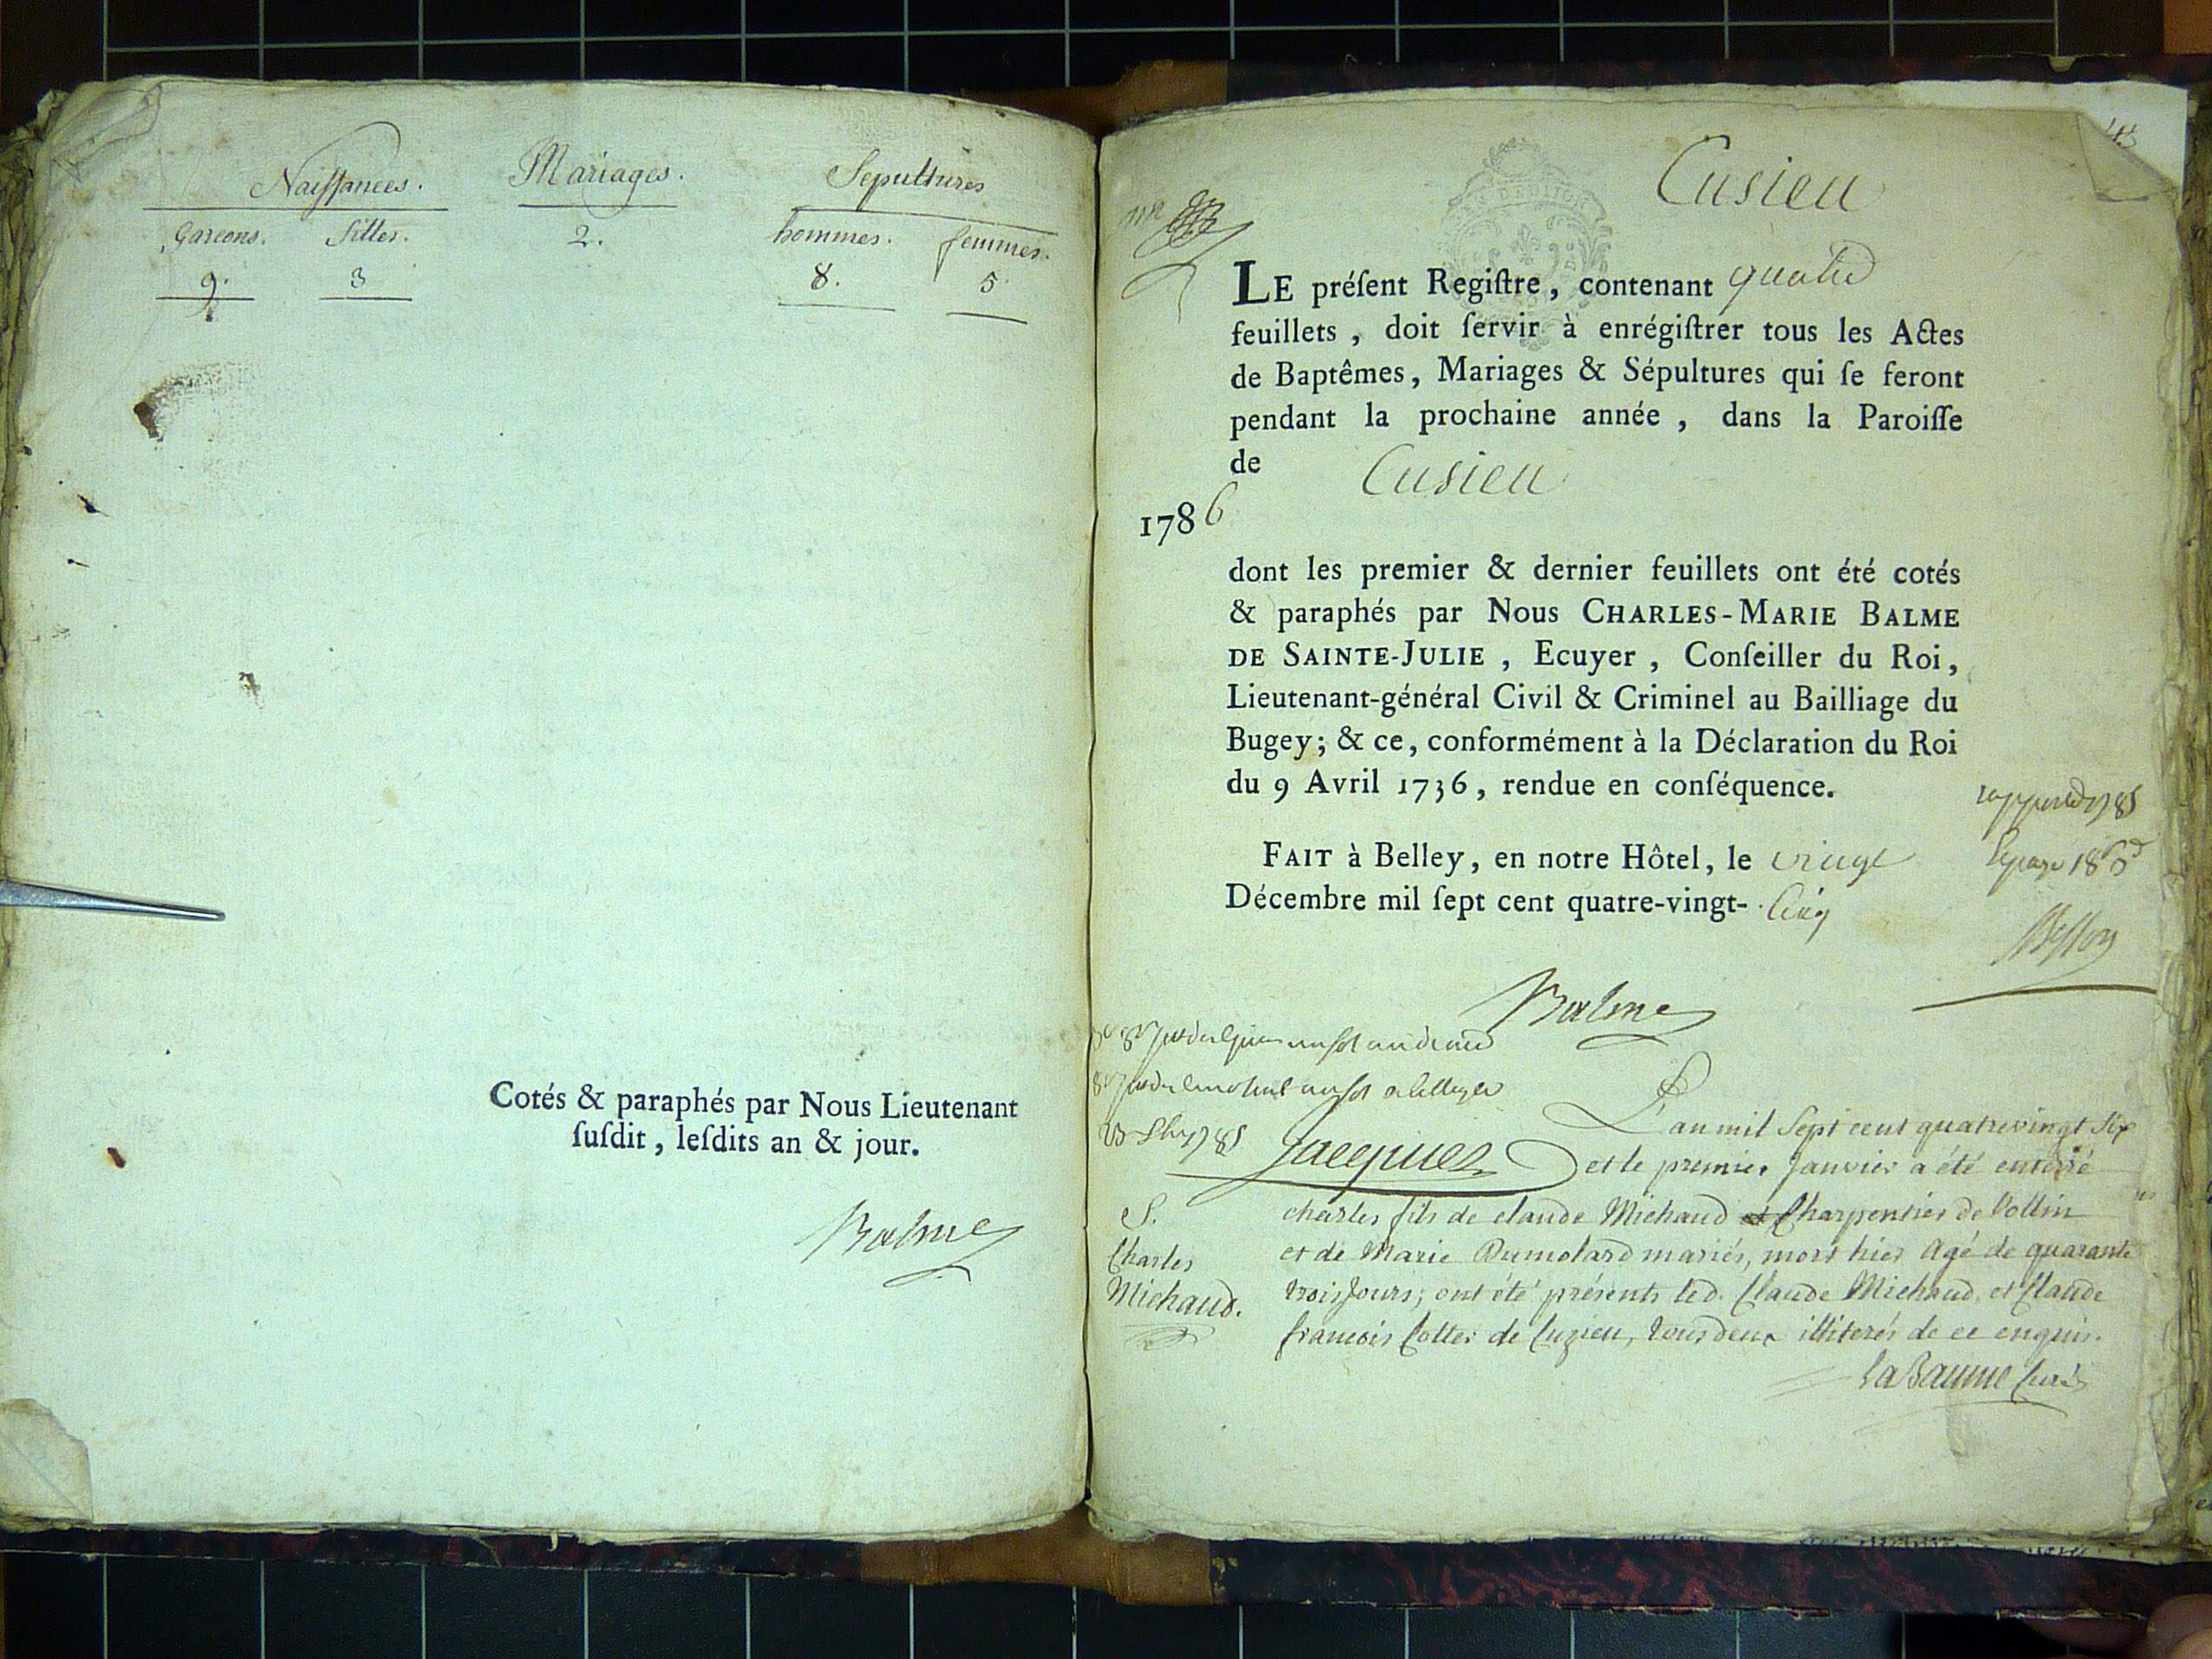 Naissances. Mariages. Sepultures
Garcons. filles. 2. hommes. femmes.
9. 3 8. 5
Cotés & paraphés par Nous Lieutenant
ſuſdit, leſdits an & jour.
Balme
Cusieu
LE préſent Regiſtre, contenant quatre
feuillets, doit ſervir à enrégiſtrer tous les Actes
de Baptêmes, Mariages & Sépultures qui ſe feront
pendant la prochaine année, dans la Paroiſſe
de Cusieu
1786
dont les premier & dernier feuillets ont été cotés
& paraphés par Nous CHARLES-MARIE BALME
DE SAINTE-JULIE, Ecuyer, Conſeiller du Roi,
Lieutenant-général Civil & Criminel au Bailliage du
Bugey; & ce, conformément à la Déclaration du Roi
du 9 Avril 1736, rendue en conſéquence.
FAIT à Belley, en notre Hôtel, le vingt
Décembre mil ſept cent quatre-vingt-Cinq
Balme
Jacques
L'an mil Sept cent quatrevingt Six
et le premier Janvier a été enterré
S. charles fils de claude Michaud Charpentier de Vollin
Charles et de Marie Dumolard mariés, mort hier Agé de quarante
Michaud. trois Jours; ont été présents led. Claude Michaud, et Claude
francois Cottet de Cuzieu, tous deux illiterés de ce enquis.
LaBaume Curé